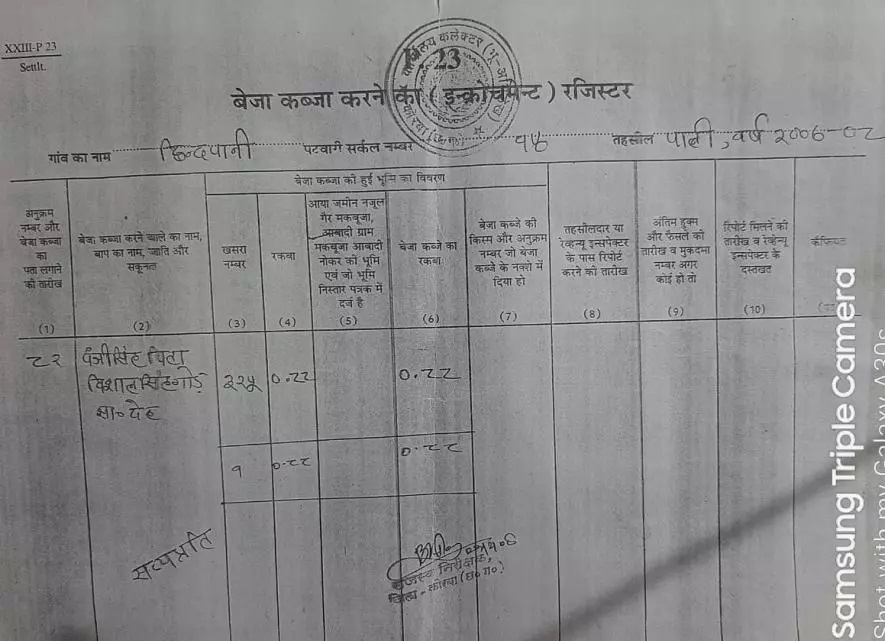 XXIII-P 23
Settlt.
23
बेजा कब्जा करने का ( इन्क्रोचमेन्ट ) रजिस्टर
गांव का नाम छिन्दपानी पटवारी सर्कल नम्बर १५ तहसील पाली, वर्ष २००६-०८
बेजा कब्जा की हुई भूमि का विवरण
अनुक्रम
नम्बर और
बेजा कब्जा
का
पता लगाने
की तारीख
बेजा कब्जा करने वाले का नाम,
बाप का नाम, जाति और
सकूनत
खसरा
नम्बर
रकबा
आया जमीन नजूल
गैर मकबूजा,
आबादी ग्राम,
मकबूजा आबादी
नोकर की भूमि
एवं जो भूमि
निस्तार पत्रक में
दर्ज है
बेजा कब्जे का
रकबा
बेजा कब्जे की
किस्म और अनुक्रम
नम्बर जो बेजा
कब्जे के नक्शे में
दिया हो
तहसीलदार या
रेव्हन्यू इन्सपेक्टर
के पास रिपोर्ट
करने की तारीख
अंतिम हुक्म
और फैसले की
तारीख व मुकदमा
नम्बर अगर
कोई हो तो
रिपोर्ट मिलने की
तारीख व रेव्हेन्यू
इन्सपेक्टर के
दस्तखत
कैफियत
(1) (2) (3) (4) (5) (6) (7) (8) (9) (10)
८२ पंजीसिंह पिता
विशालसिंह गोंड़ २२५ ०.८८ ०.८८
सा० देह
१ ०.८८ ०.८८
सत्यप्रति
राजस्व निरीक्षक,
जिला - कोरबा (छ० ग०)
Samsung Triple Camera
Shot with my Galaxy A30s